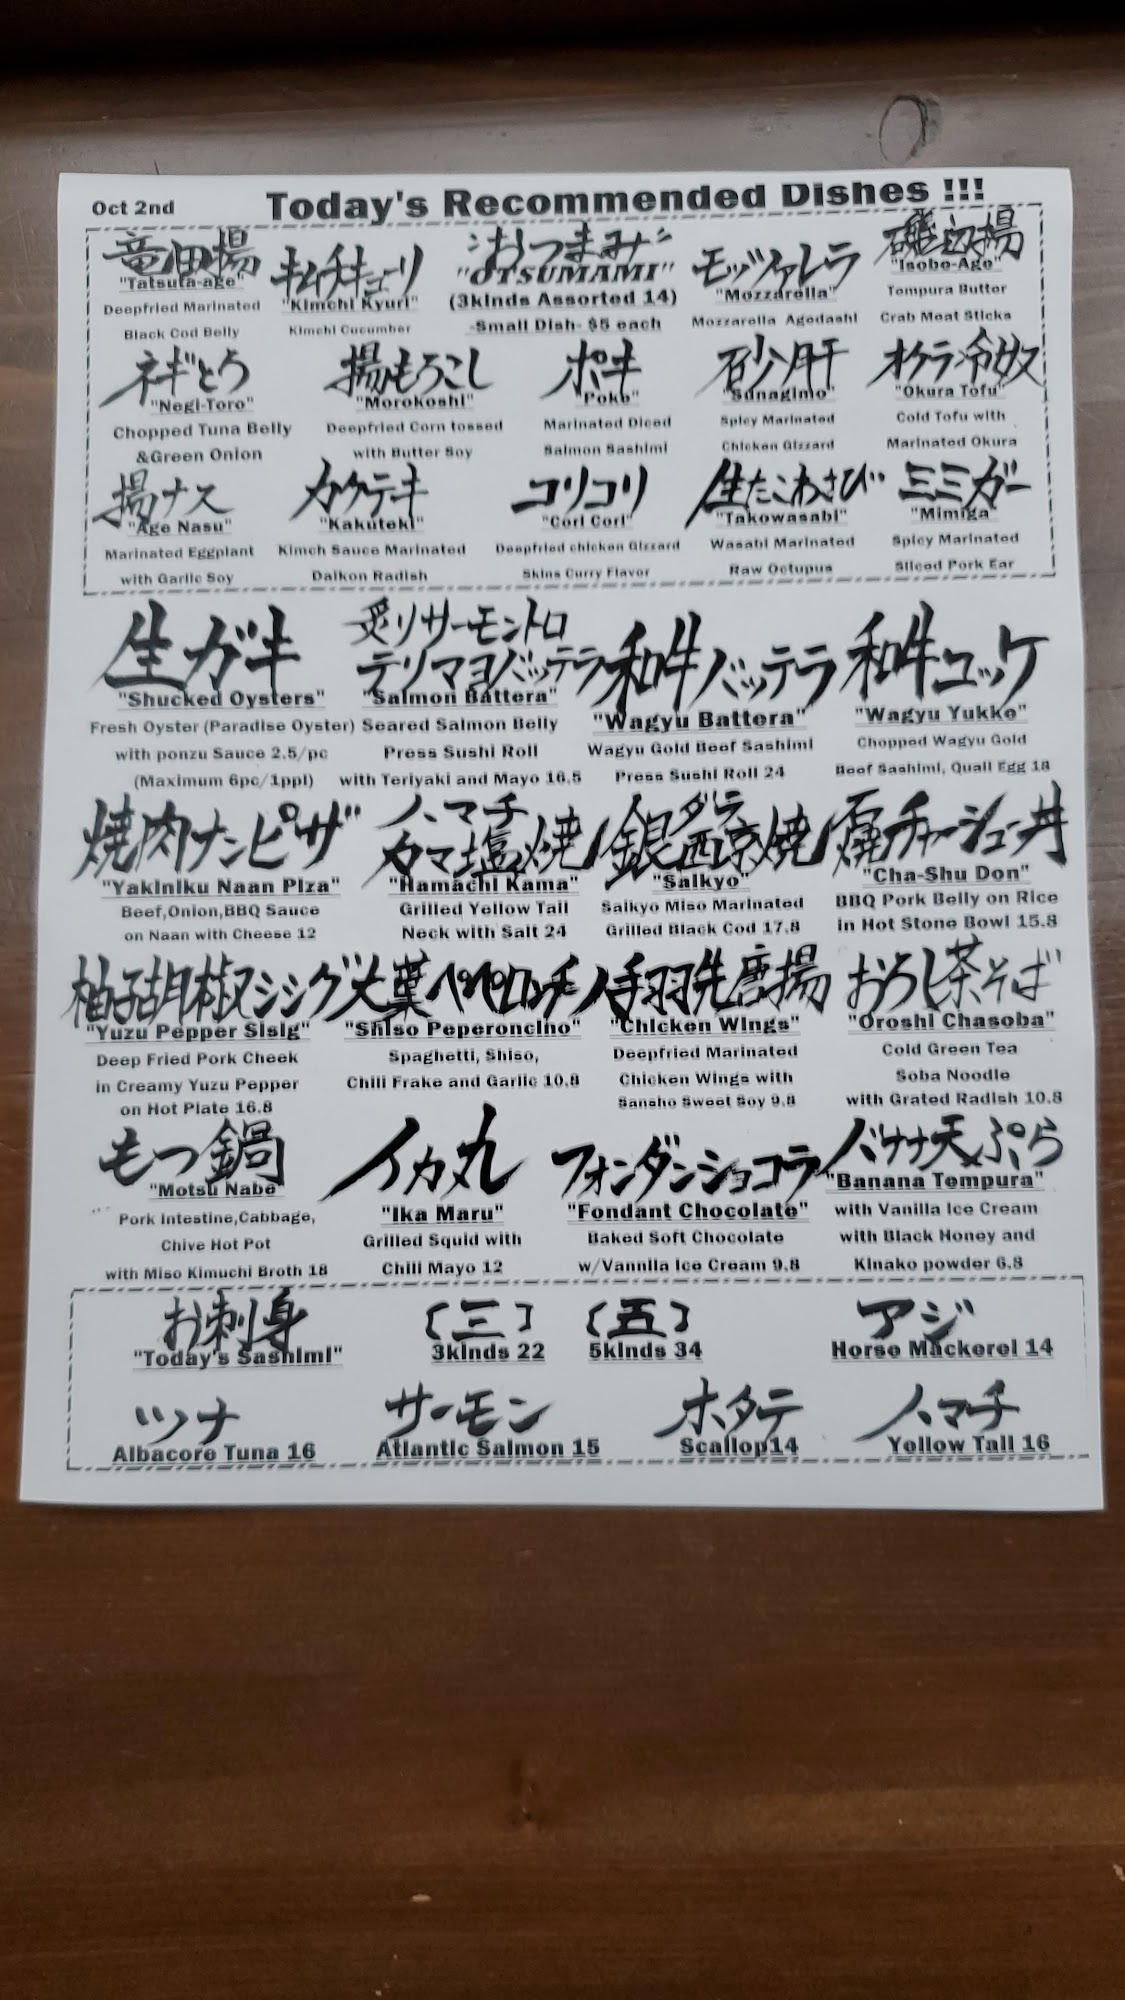 Oct 2nd
Today's Recommended Dishes !!!
竜田揚
"Tatsuta-age"
Deepfried Marinated
Black Cod Belly
キムチキューリ
"Kimchi Kyuri"
Kimchi Cucumber
おつまみ
"OTSUMAMI"
(3kinds Assorted 14)
-Small Dish- $5 each
モッツァレラ
"Mozzarella"
Mozzarella Agedashi
磯辺揚
"Isobe-Age"
Tempura Butter
Crab Meat Sticks
ネギとろ
"Negi-Toro"
Chopped Tuna Belly
&Green Onion
揚もろこし
"Morokoshi"
Deepfried Corn tossed
with Butter Soy
ポキ
"Poke"
Marinated Diced
Salmon Sashimi
砂肝
"Sunagimo"
Spicy Marinated
Chicken Gizzard
オクラ冷奴
"Okura Tofu"
Cold Tofu with
Marinated Okura
揚ナス
"Age Nasu"
Marinated Eggplant
with Garlic Soy
カクテキ
"Kakuteki"
Kimch Sauce Marinated
Daikon Radish
コリコリ
"Cori Cori"
Deepfried chicken Gizzard
Skins Curry Flavor
生たこわさび
"Takowasabi"
Wasabi Marinated
Raw Octupus
ミミガー
"Mimiga"
Spicy Marinated
Sliced Pork Ear
生ガキ
"Shucked Oysters"
Fresh Oyster (Paradise Oyster)
with ponzu Sauce 2.5/pc
(Maximum 6pc/1ppl)
炙りサーモントロ
テリマヨバッテラ
"Salmon Battera"
Seared Salmon Belly
Press Sushi Roll
with Teriyaki and Mayo 16.5
和牛バッテラ
"Wagyu Battera"
Wagyu Gold Beef Sashimi
Press Sushi Roll 24
和牛ユッケ
"Wagyu Yukke"
Chopped Wagyu Gold
Beef Sashimi, Quail Egg 18
焼肉ナンピザ
"Yakiniku Naan Piza"
Beef,Onion,BBQ Sauce
on Naan with Cheese 12
ハマチ
カマ塩焼
"Hamachi Kama"
Grilled Yellow Tail
Neck with Salt 24
銀ダラ
西京焼
"Saikyo"
Saikyo Miso Marinated
Grilled Black Cod 17.8
チャーシュー丼
"Cha-Shu Don"
BBQ Pork Belly on Rice
in Hot Stone Bowl 15.8
柚子胡椒シシグ
"Yuzu Pepper Sisig"
Deep Fried Pork Cheek
in Creamy Yuzu Pepper
on Hot Plate 16.8
大葉ペペロンチーノ
"Shiso Peperoncino"
Spaghetti, Shiso,
Chili Frake and Garlic 10.8
手羽先唐揚
"Chicken Wings"
Deepfried Marinated
Chicken Wings with
Sansho Sweet Soy 9.8
おろし茶そば
"Oroshi Chasoba"
Cold Green Tea
Soba Noodle
with Grated Radish 10.8
もつ鍋
"Motsu Nabe"
Pork Intestine,Cabbage,
Chive Hot Pot
with Miso Kimuchi Broth 18
イカ丸
"Ika Maru"
Grilled Squid with
Chili Mayo 12
フォンダンショコラ
"Fondant Chocolate"
Baked Soft Chocolate
w/Vannila Ice Cream 9.8
バナナ天ぷら
"Banana Tempura"
with Vanilla Ice Cream
with Black Honey and
Kinako powder 6.8
お刺身
"Today's Sashimi"
〔三〕
3kinds 22
〔五〕
5kinds 34
アジ
Horse Mackerel 14
ツナ
Albacore Tuna 16
サーモン
Atlantic Salmon 15
ホタテ
Scallop14
ハマチ
Yellow Tail 16